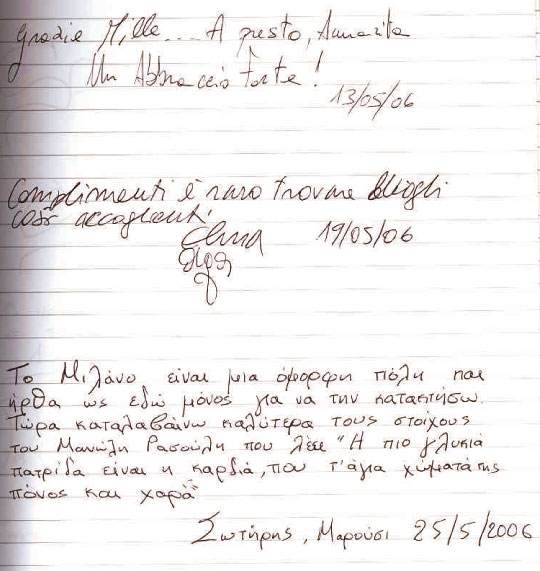 Grazie Mille... A presto, Annarita
Un Abbraccio forte!
13/05/06
Complimenti è raro trovare luoghi
così accoglienti.
19/05/06
Το Μιλάνο είναι μια όμορφη πόλη και
ήρθα ως εδώ μόνος για να την κατακτήσω.
Τώρα καταλαβαίνω καλύτερα τους στοίχους
του Μανώλη Ρασούλη που λέει "Η πιο γλυκιά
πατρίδα είναι η καρδιά, που τ' άγια χώματά της
πόνος και χαρά"
Σωτήρης, Μαρούσι 25/5/2006